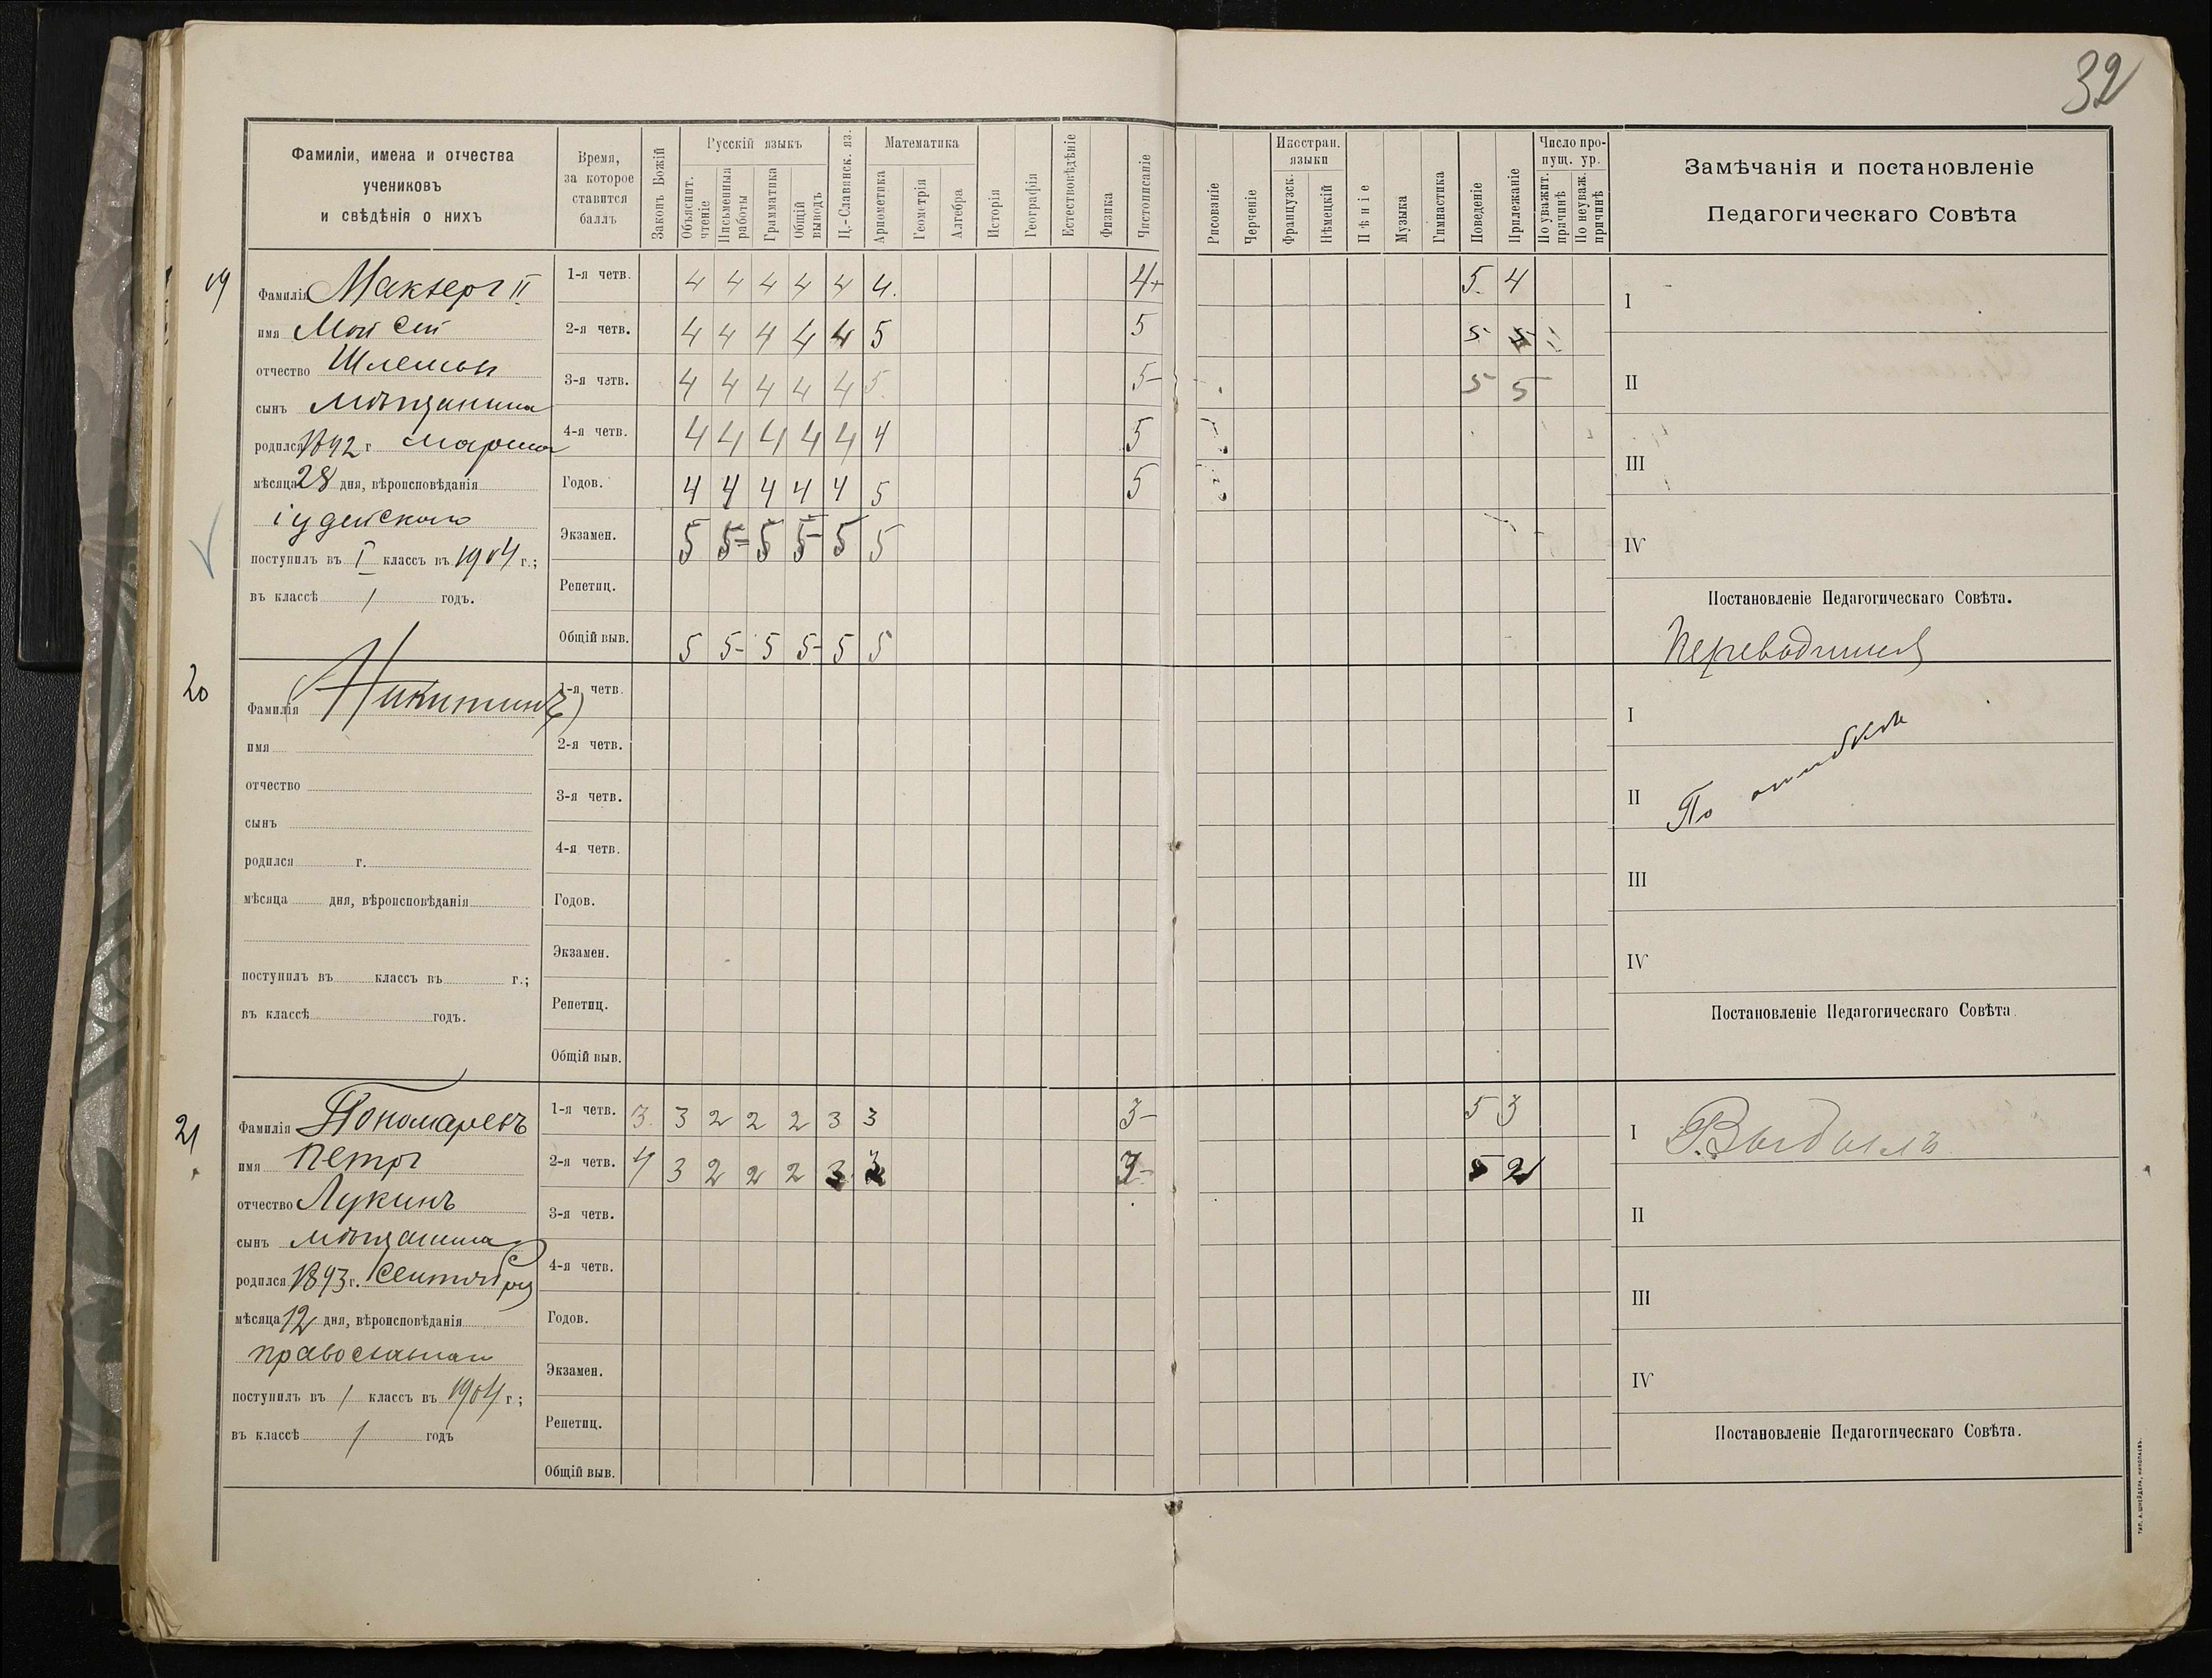 32
Фамиліи, имена и отчества
учениковъ
и свѣдѣнія о нихъ
Время,
за которое
ставится
баллъ
Законъ Божій
Русскій языкъ
Объяснит. чтеніе
Письменныя работы
Грамматика
Общій выводъ
Ц.-Славянск. яз.
Математика
Ариѳметика
Геометрія
Алгебра
Исторія
Географія
Естествовѣдѣніе
Физика
Чистописаніе
Рисованіе
Черченіе
Иностран. языки
Французск.
Нѣмецкій
Пѣніе
Музыка
Гимнастика
Поведеніе
Прилежаніе
Число пропущ. ур.
По уважит. причинѣ
По неуваж. причинѣ
Замѣчанія и постановленіе
Педагогическаго Совѣта
19
Фамилія Макзергъ II
имя Мойсей
отчество Шлемовъ
сынъ мѣщанина
родился 1892 г. марта
мѣсяца 28 дня, вѣроисповѣданія
іудейскаго
поступилъ въ I классъ въ 1904 г.;
въ классѣ 1 годъ.
1-я четв. 4 4 4 4 4 4. 4+ 5. 4
2-я четв. 4 4 4 4 4 5 5 5 5
3-я четв. 4 4 4 4 4 5 5- 5 5
4-я четв. 4 4 4 4 4 4 5
Годов. 4 4 4 4 4 5 5
Экзамен. 5 5= 5 5- 5 5
Репетиц.
Общій выв. 5 5- 5 5- 5 5
I
II
III
IV
Постановленіе Педагогическаго Совѣта.
Переводится
20
Фамилія (Никитинъ)
имя
отчество
сынъ
родился г.
мѣсяца дня, вѣроисповѣданія
поступилъ въ классъ въ г.;
въ классѣ годъ.
1-я четв.
2-я четв.
3-я четв.
4-я четв.
Годов.
Экзамен.
Репетиц.
Общій выв.
I
II По ошибкѣ
III
IV
Постановленіе Педагогическаго Совѣта.
21
Фамилія Пономаревъ
имя Петръ
отчество Лукинъ
сынъ мѣщанина
родился 1893 г. Сентября
мѣсяца 12 дня, вѣроисповѣданія
православнаго
поступилъ въ 1 классъ въ 1904 г.;
въ классѣ 1 годъ
1-я четв. 3. 3 2 2 2 3 3 3- 5 3
2-я четв. 4 3 2 2 2 3 3 3- 5 2
3-я четв.
4-я четв.
Годов.
Экзамен.
Репетиц.
Общій выв.
I Выбылъ
II
III
IV
Постановленіе Педагогическаго Совѣта.
ТИП. А. ШНЕЙДЕРА, НИКОЛАЕВЪ.